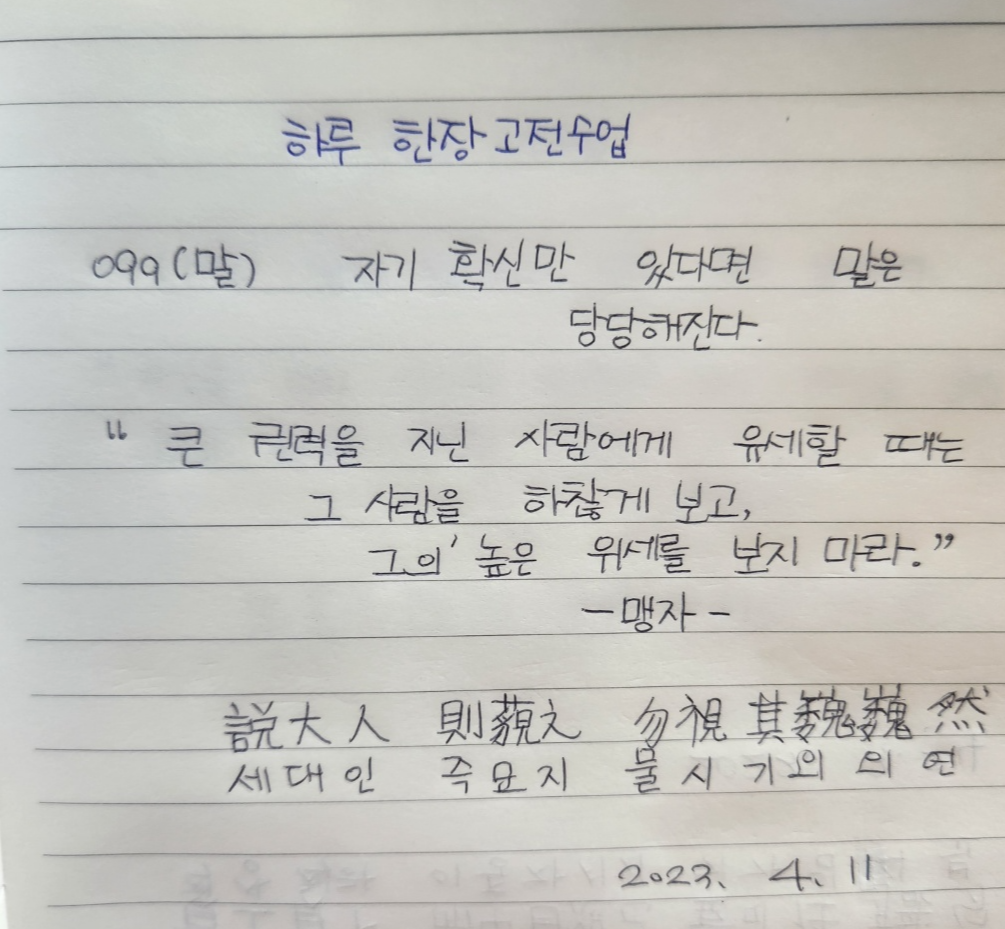 하루 한장 고전수업
099(말) 자기 확신만 있다면 말은
당당해진다.
“ 큰 권력을 지닌 사람에게 유세할 때는
그 사람을 하찮게 보고,
그의' 높은 위세를 보지 마라.”
- 맹자 -
説大人 則藐之 勿視其巍巍然
세대인 즉묘지 물시기외외연
2023. 4. 11